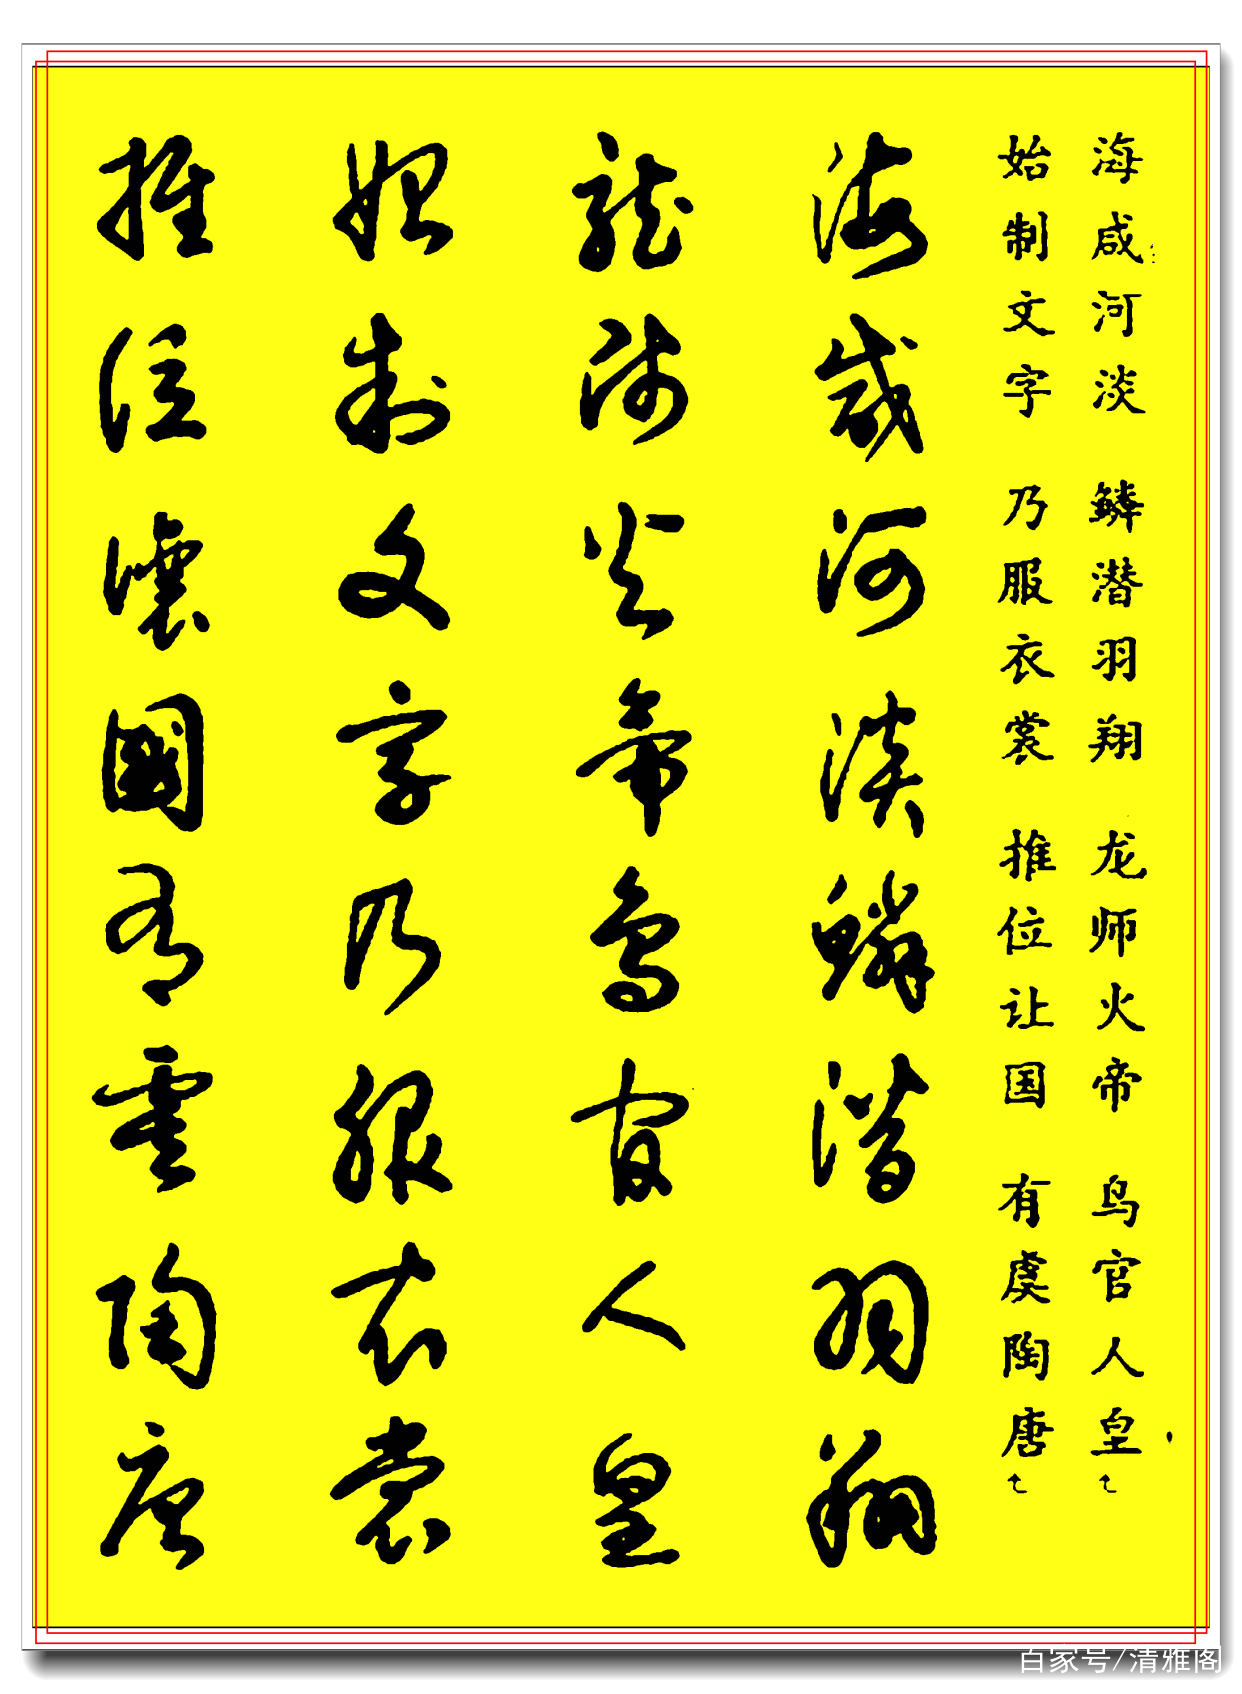 海咸河淡 鳞潜羽翔 龙师火帝 鸟官人皇
始制文字 乃服衣裳 推位让国 有虞陶唐
海咸河淡鱗潛羽翔
龍師火帝鳥官人皇
始制文字乃服衣裳
推位讓國有虞陶唐
百家号/清雅阁